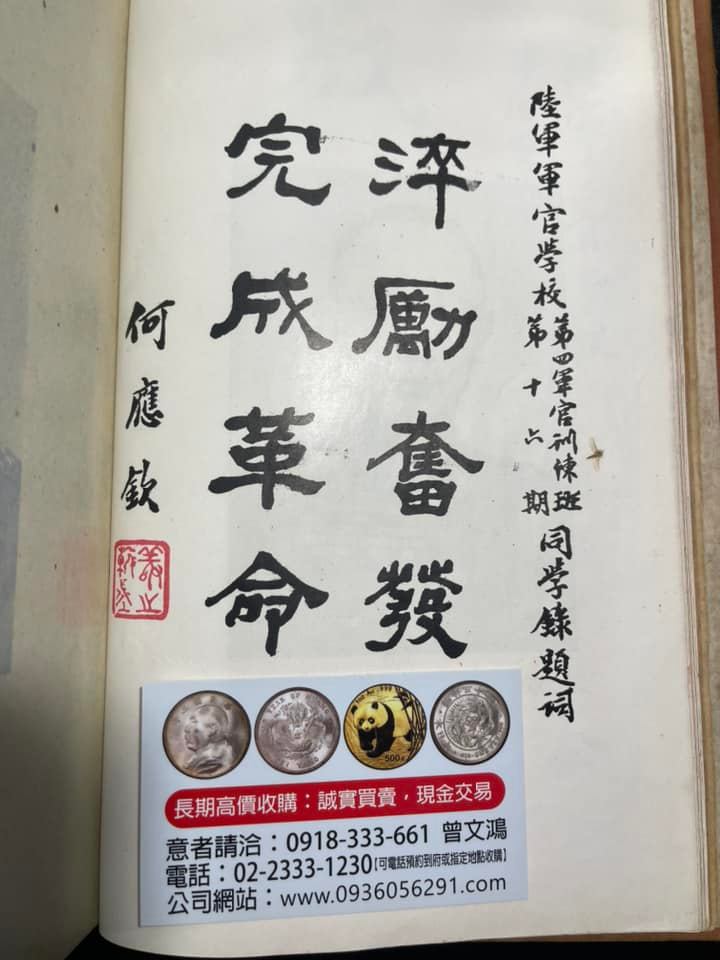 陸軍軍官學校第四軍官訓練班第十六期同學錄題詞
淬勵奮發
完成革命
何應欽
長期高價收購：誠實買賣，現金交易
意者請洽：0918-333-661 曾文鴻
電話：02-2333-1230【可電話預約到府或指定地點收購】
公司網站：www.0936056291.com
500元